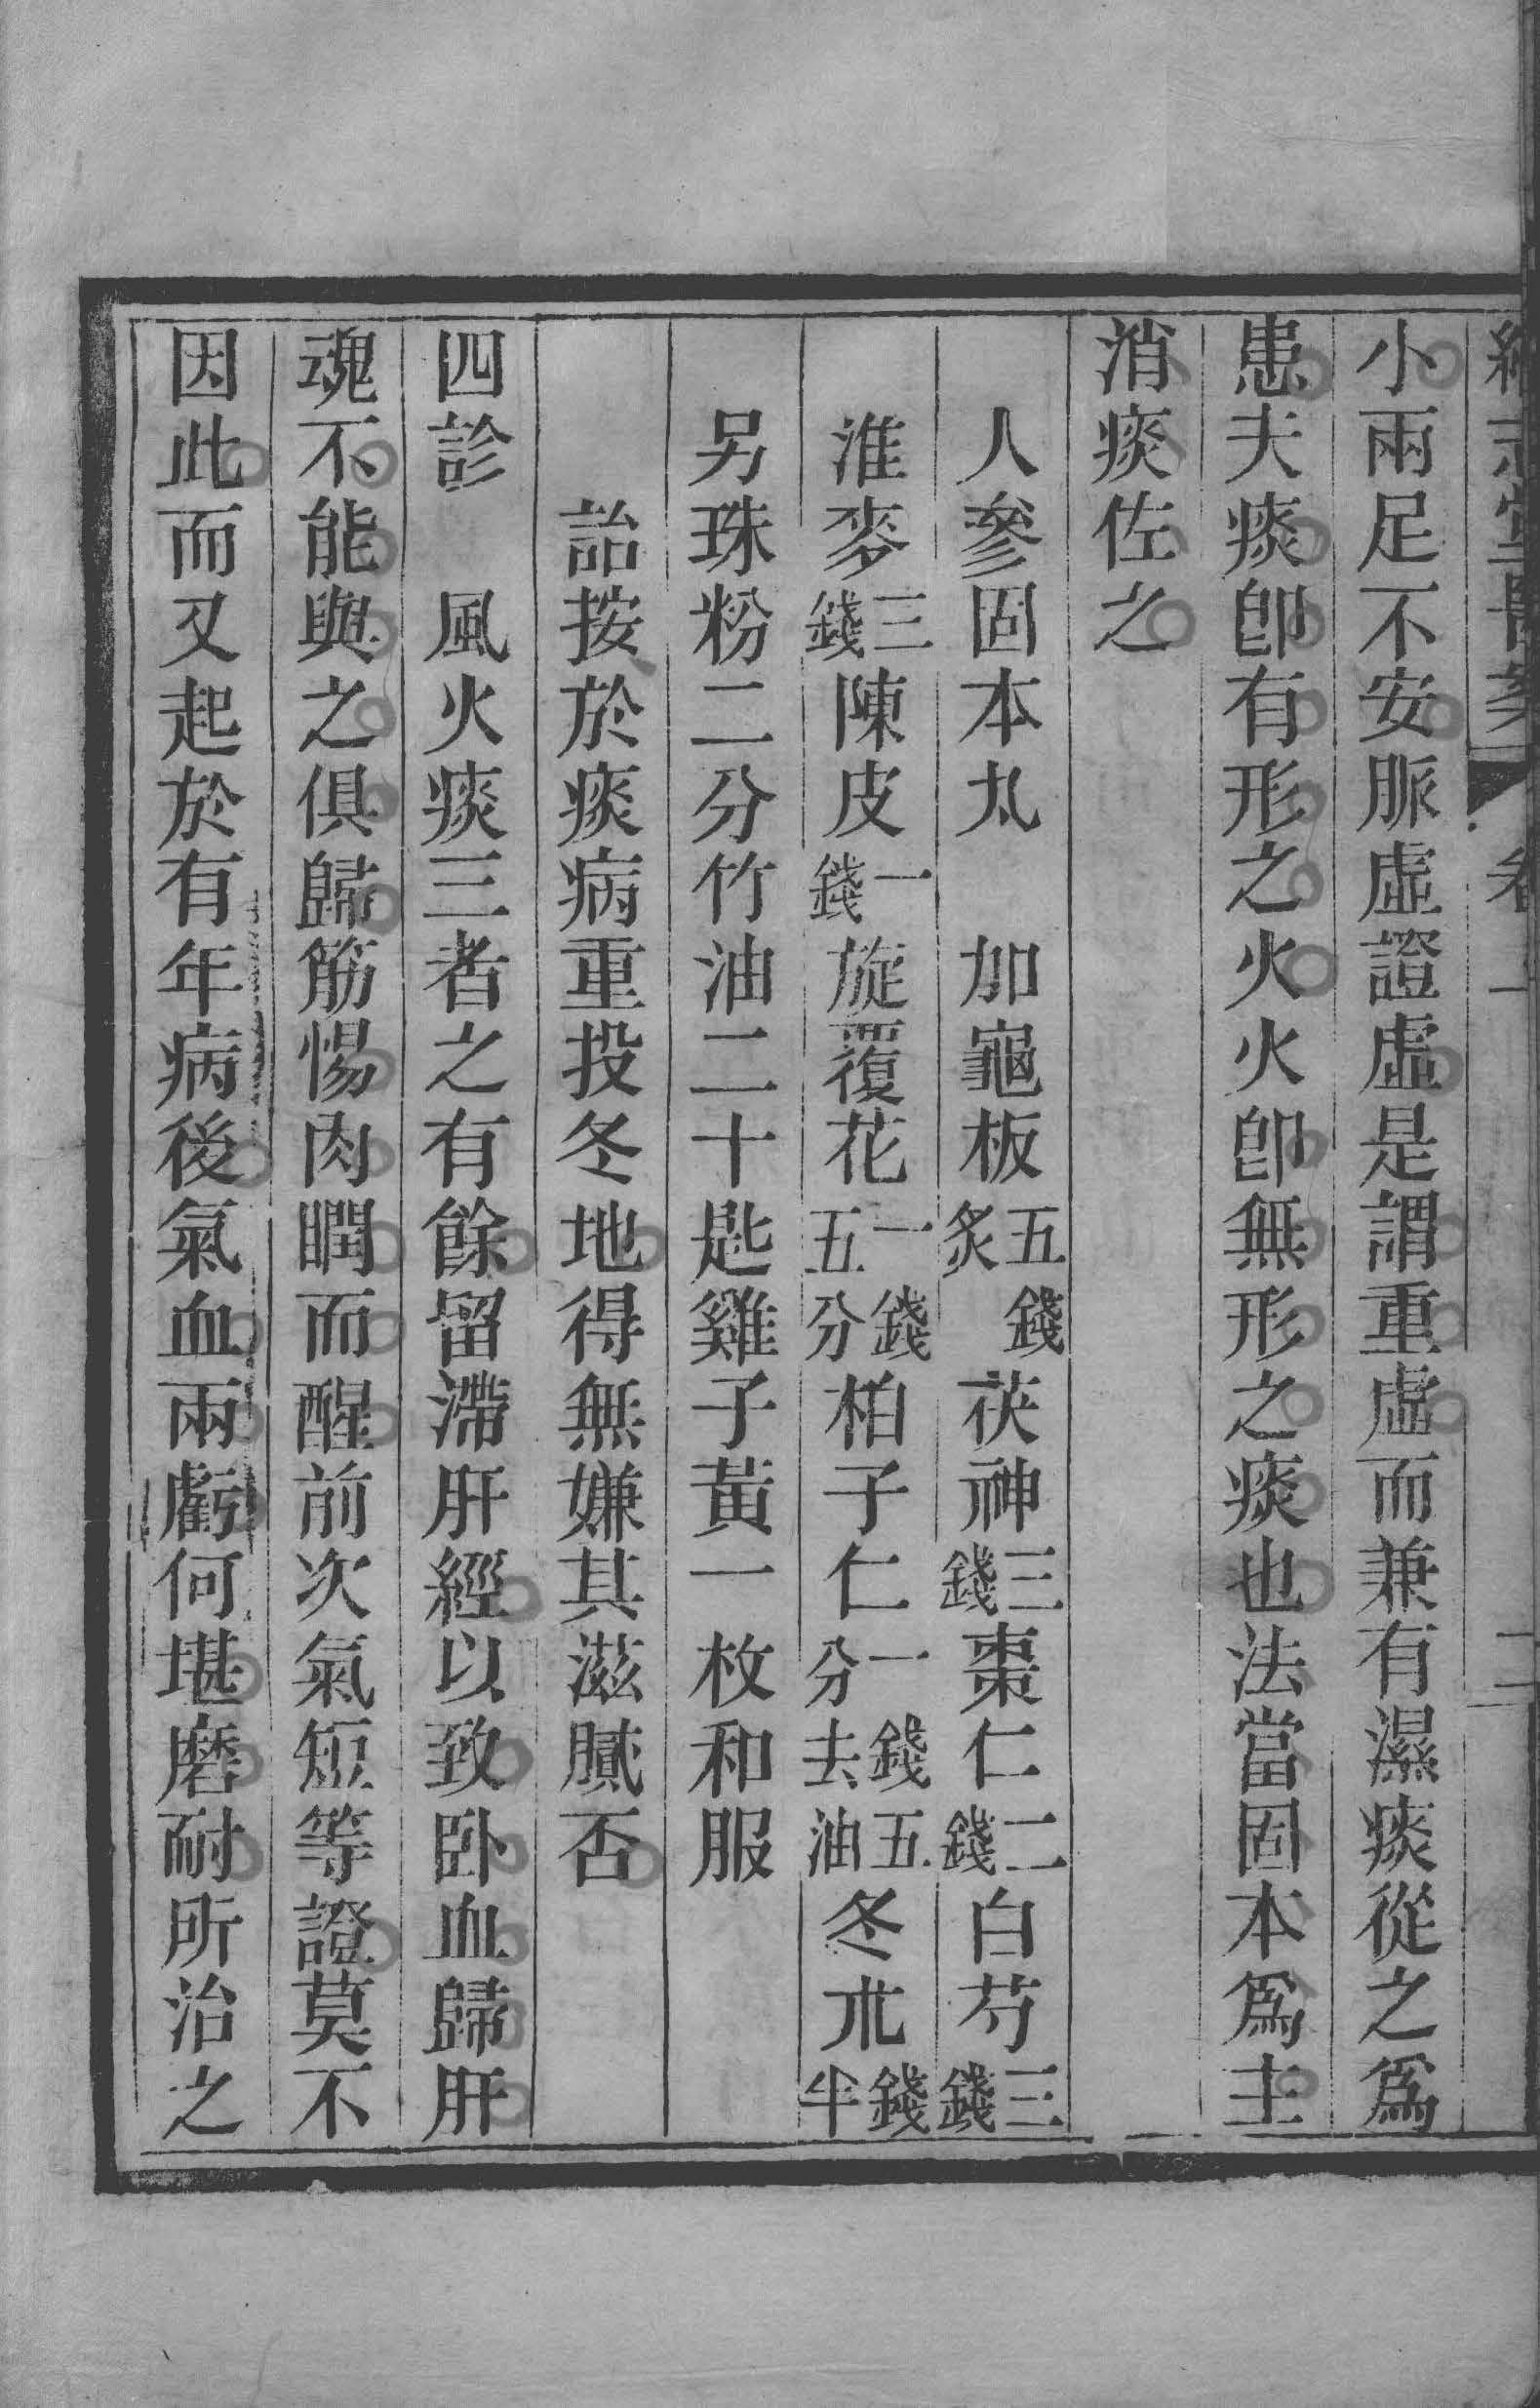 志堂醫案 卷
小兩足不安脈虛證虛是謂重虛而兼有濕痰從之爲
患夫痰卽有形之火火卽無形之痰也法當固本爲主
消痰佐之
人參固本丸 加龜板五錢炙茯神三錢棗仁二錢白芍三錢
淮麥三錢陳皮一錢旋覆花一錢五分柏子仁一錢五分去油冬朮錢半
另珠粉二分竹油二十匙雞子黃一枚和服
詒按於痰病重投冬地得無嫌其滋膩否
四診 風火痰三者之有餘留滯肝經以致卧血歸肝
魂不能與之俱歸筋惕肉瞤而醒前次氣短等證莫不
因此而又起於有年病後氣血兩虧何堪磨耐所治之